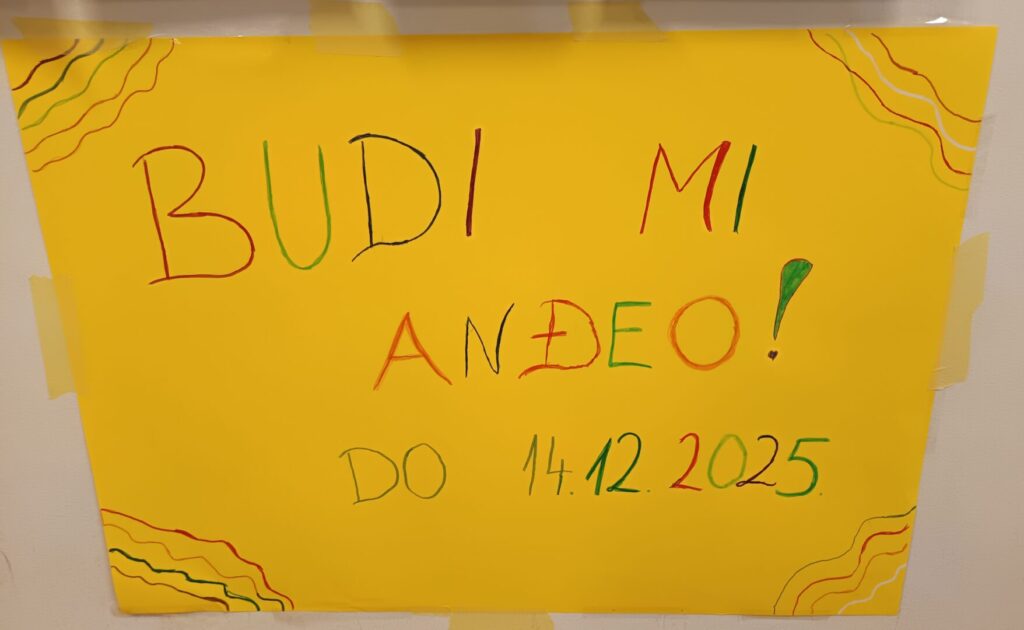 BUDI MI
ANĐEO!
DO 14.12.2025.